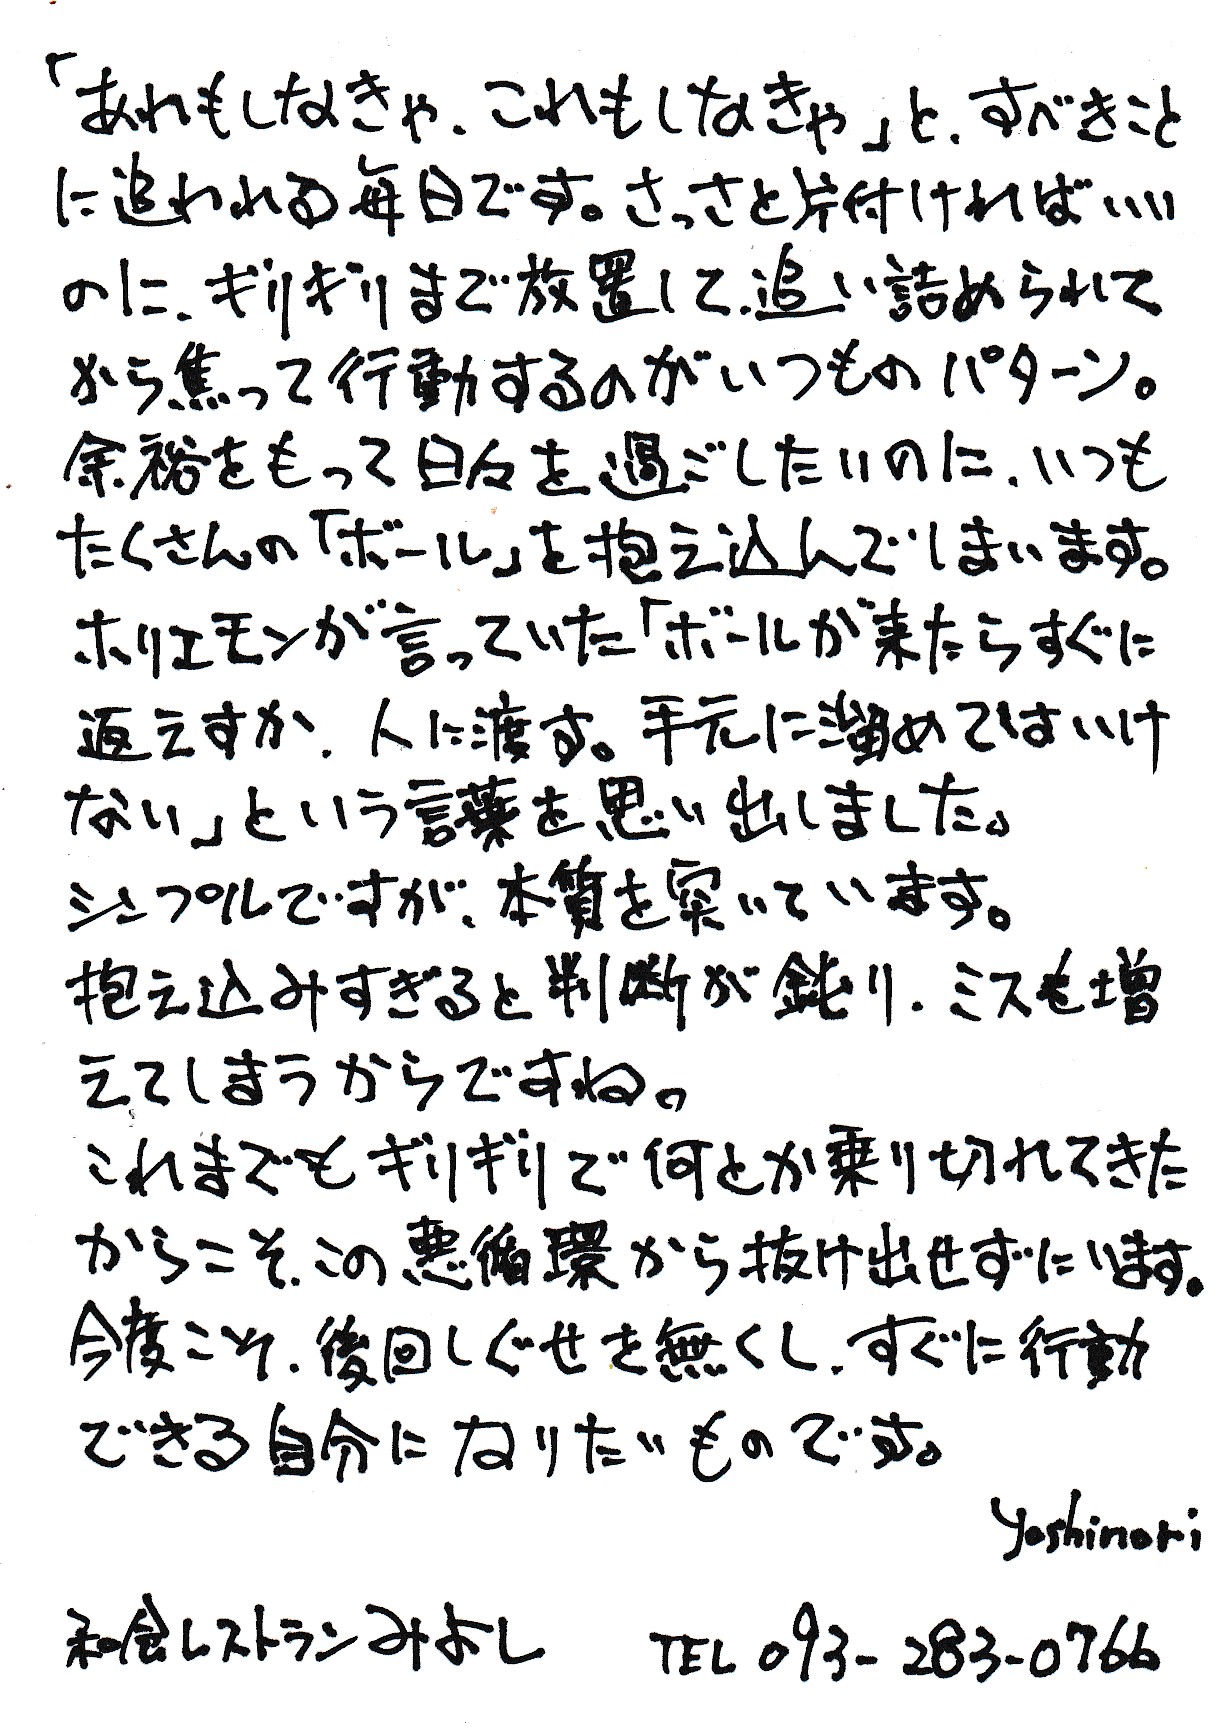 「あれもしなきゃ、これもしなきゃ」と、すべきこと
に追われる毎日です。さっさと片付ければいい
のに、ギリギリまで放置して、追い詰められて
から焦って行動するのがいつものパターン。
余裕をもって日々を過ごしたいのに、いつも
たくさんの「ボール」を抱え込んでしまいます。
ホリエモンが言っていた「ボールが来たらすぐに
返えすか、人に渡す。手元に溜めてはいけ
ない」という言葉を思い出しました。
シンプルですが、本質を突いています。
抱え込みすぎると判断が鈍り、ミスも増
えてしまうからですね。
これまでもギリギリで何とか乗り切れてきた
からこそ、この悪循環から抜け出せずにいます。
今度こそ、後回しぐせを無くし、すぐに行動
できる自分になりたいものです。
Yoshinori
和食レストランみよし TEL 093-283-0766